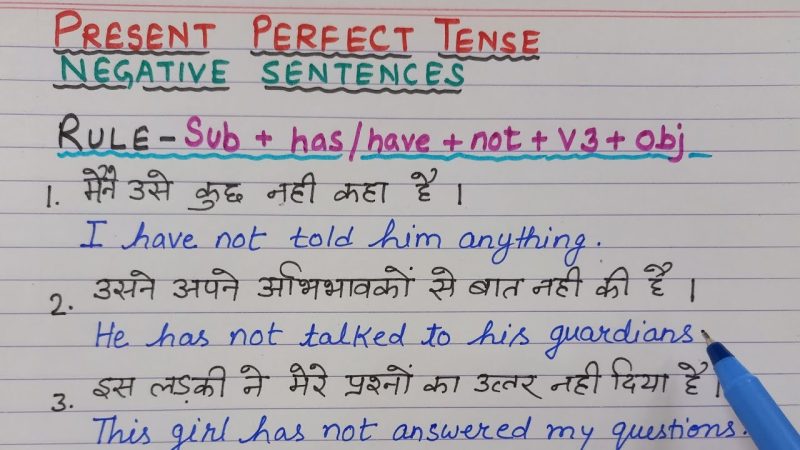 PRESENT PERFECT TENSE
NEGATIVE SENTENCES
RULE - Sub + has/have + not + V3 + obj
1. मैंने उसे कुछ नही कहा है ।
I have not told him anything.
2. उसने अपने अभिभावकों से बात नही की है ।
He has not talked to his guardians
3. इस लड़की ने मेरे प्रश्नों का उत्तर नही दिया है ।
This girl has not answered my questions.